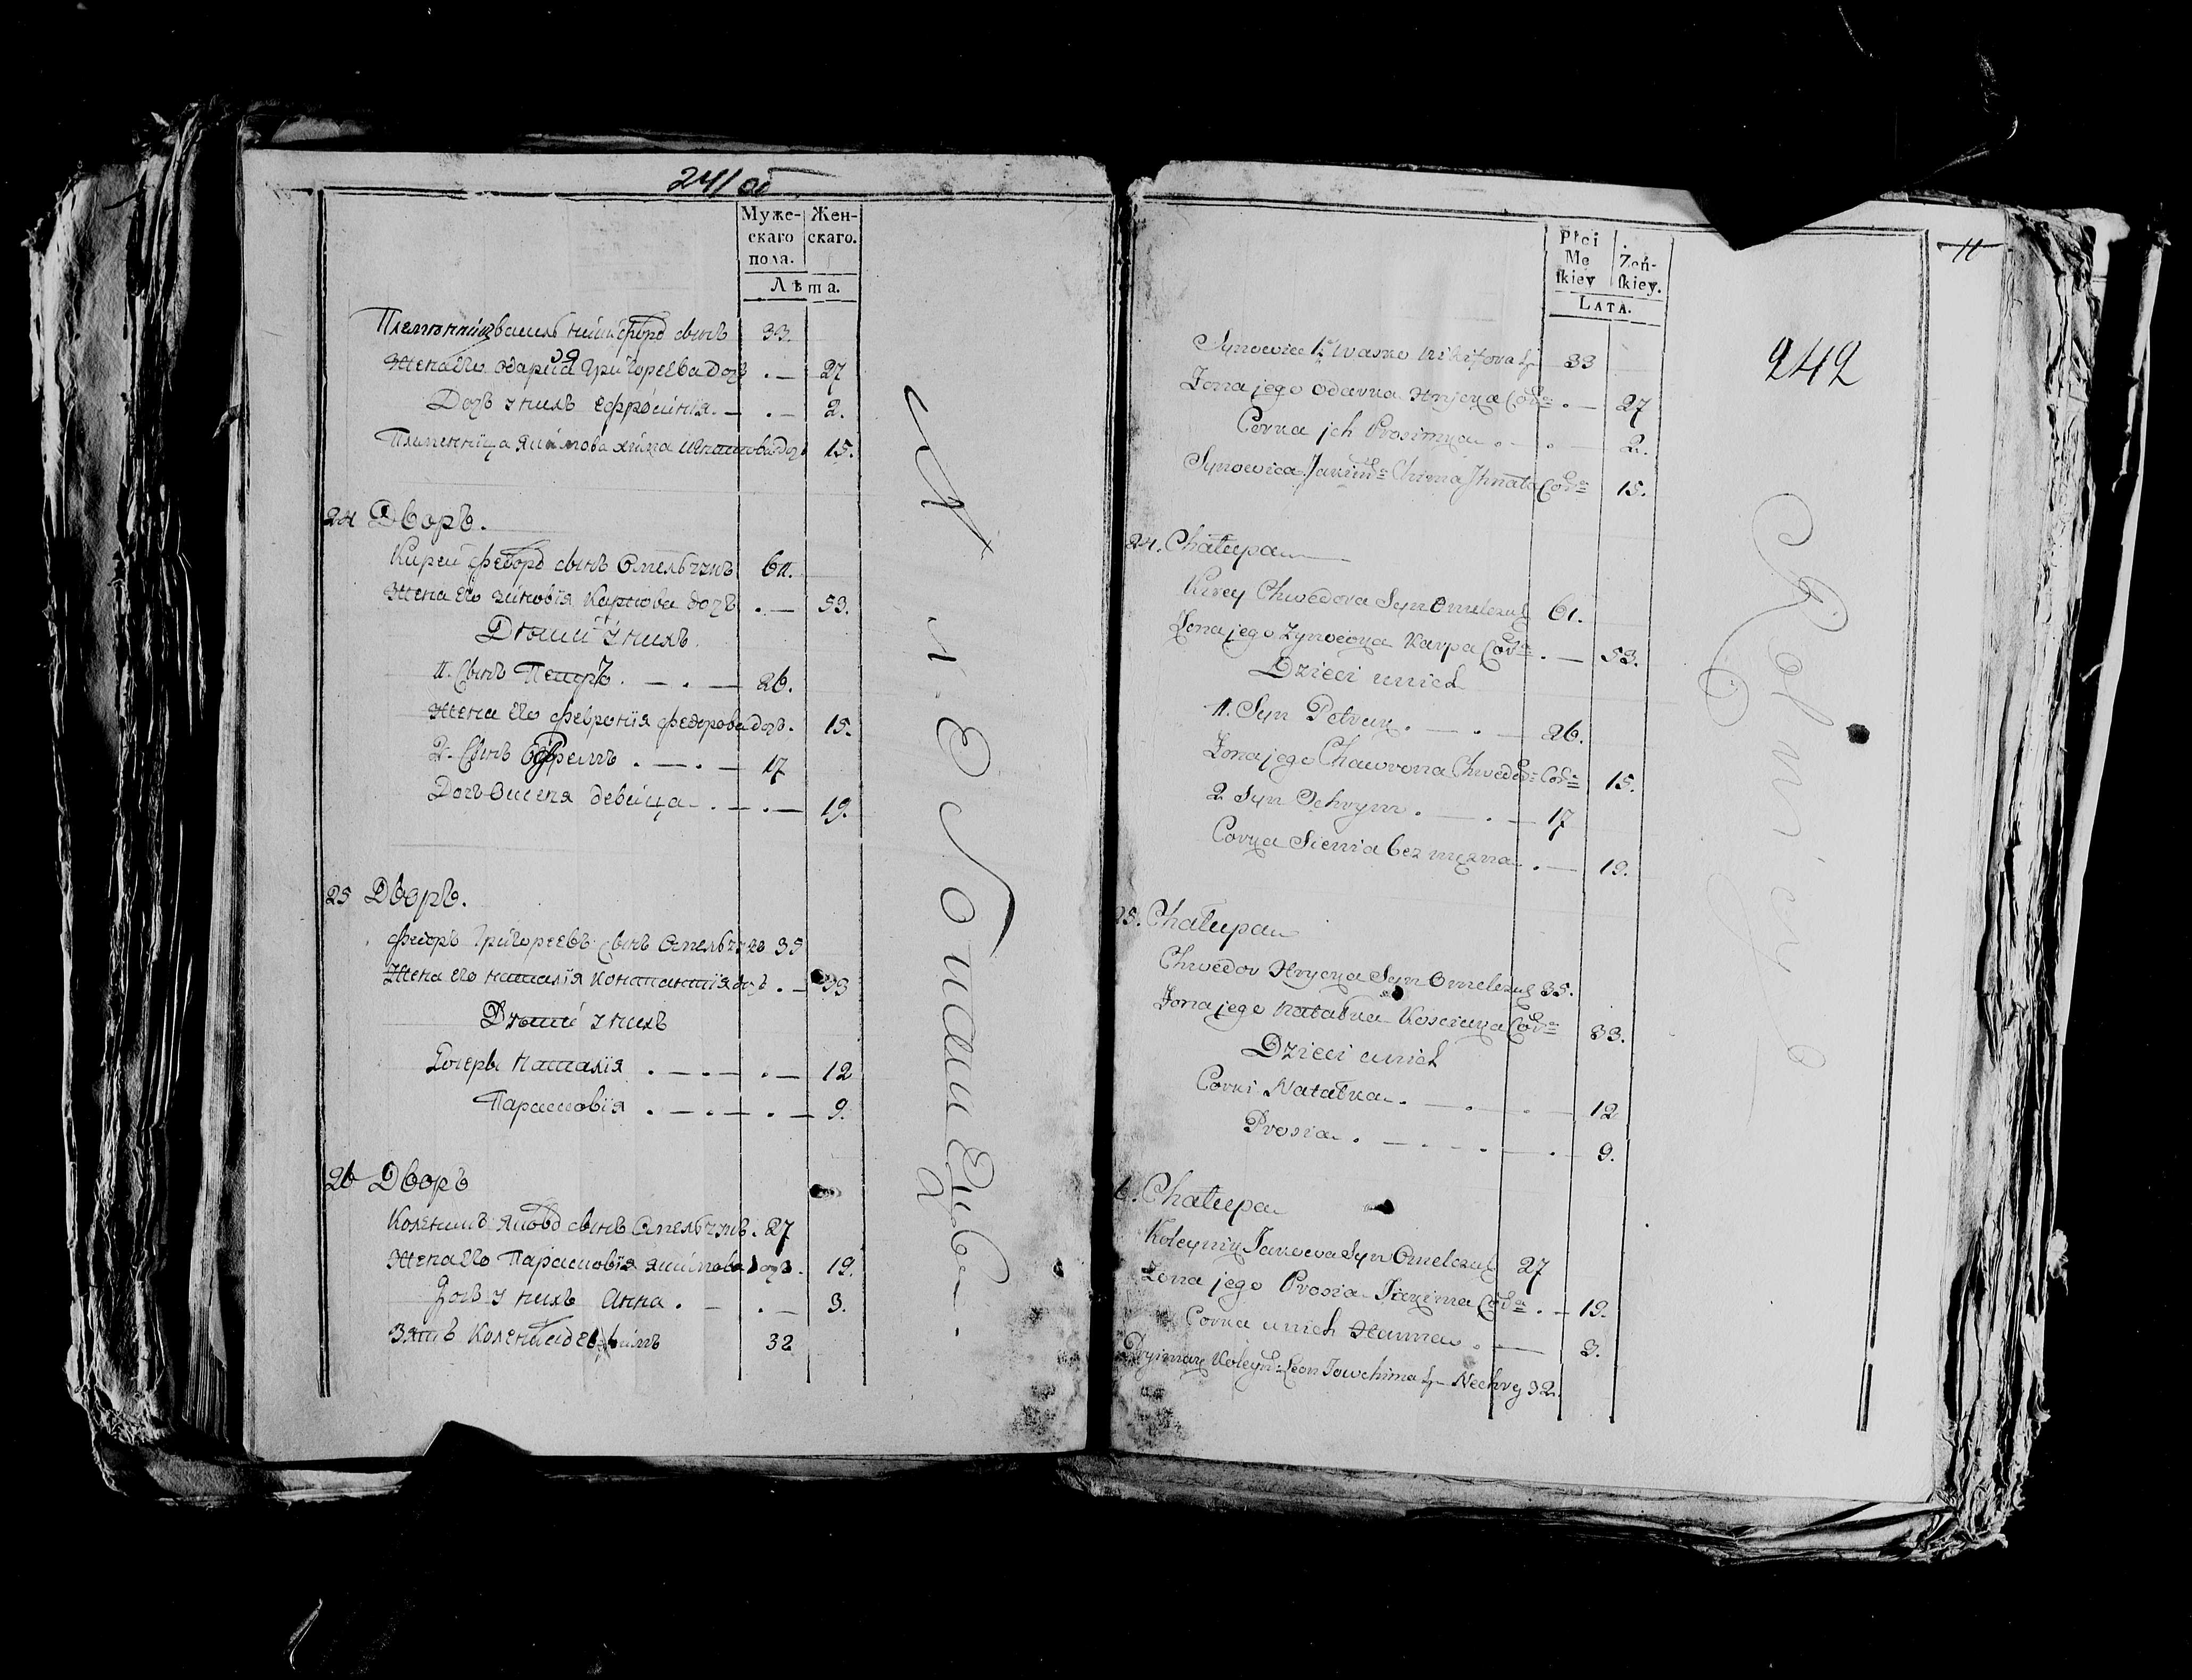 241 об
Муже-
скаго
пола.
Жен-
скаго.
Лѣта.
33.
Жена его Одария Григорѣева дочь . — 27
Дочь у нихъ Ефросинія . — . — 2.
Племенница Якимова Хима Игнатова доч 15.
24 Дворъ.
Кирей Федоровъ сынъ Омельчукъ 61.
Жена его Зиновія Карпова дочь . — 53.
Дѣти у нихъ
1. Сынъ Петръ . — . — 26.
Жена его Февронія Федорова доч. 15.
2. Сынъ Ефремъ . — . — 17
Дочь Ксеня девица . — . — 19.
25 Дворъ.
Федоръ Григорѣевъ сынъ Омельчукъ 35
Жена его Наталія Константія дочь . — 33
Дѣти у нихъ
Дочеры Наталія . — . — . — 12
Парасковія . — . — . — 9.
26 Дворъ
Коленикъ Яковъ сынъ Омельчукъ . 27
Жена его Парасковія Якимова доч. 19.
Дочь у нихъ Анна . — . — 3.
Зять 32
Płci
Mę
skiey
Żeń-
skiey.
LATA.
11
242
Synowiec Iwasko Nikifora S. 33
Żona jego Odarka Hryćka Córka . — 27
Córka ich Prosimka . — . — 2.
Synowica Jakima Chima Ihnata Córka 15.
24. Chałupa
Kirey Chwedora Syn Omelczuk 61.
Żona jego Zynowka Karpa Córka . — 53.
Dzieci u nich
1. Syn Petruk . — . — 26.
Żona jego Chawrona Chwedora Córka 15.
2 Syn Jchrym . — . — 17
Corka Sienia bez męzna . — 19.
25. Chałupa
Chwedor Hryćka Syn Omelczuk 35.
Żona jego Natałka Kościuka Córka 33.
Dzieci u nich
Corki Natałka . — . — . — 12
Prosia . — . — . — 9.
6. Chałupa
Koleynik Jakowa Syn Omelczuk 27
Żona jego Prosia Jakima Córka . — 19.
Corka u nich Hanna . — 3.
Pryimak Koleyn: Leon Jowchima S. 32.
Rolnicy